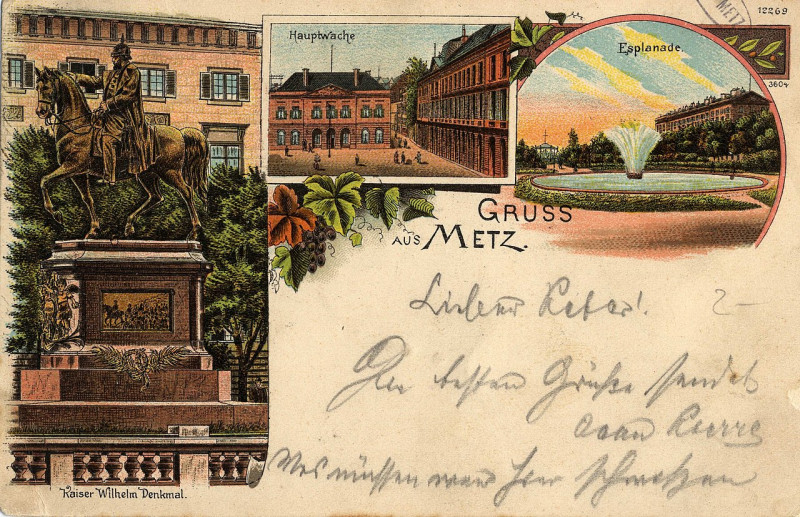 12269
METZ
Hauptwache
Esplanade.
3604
GRUSS
AUS METZ.
Lieber Peter!
2-
Die besten Grüße sendet
Was müssen wir hier schwitzen
Kaiser Wilhelm Denkmal.